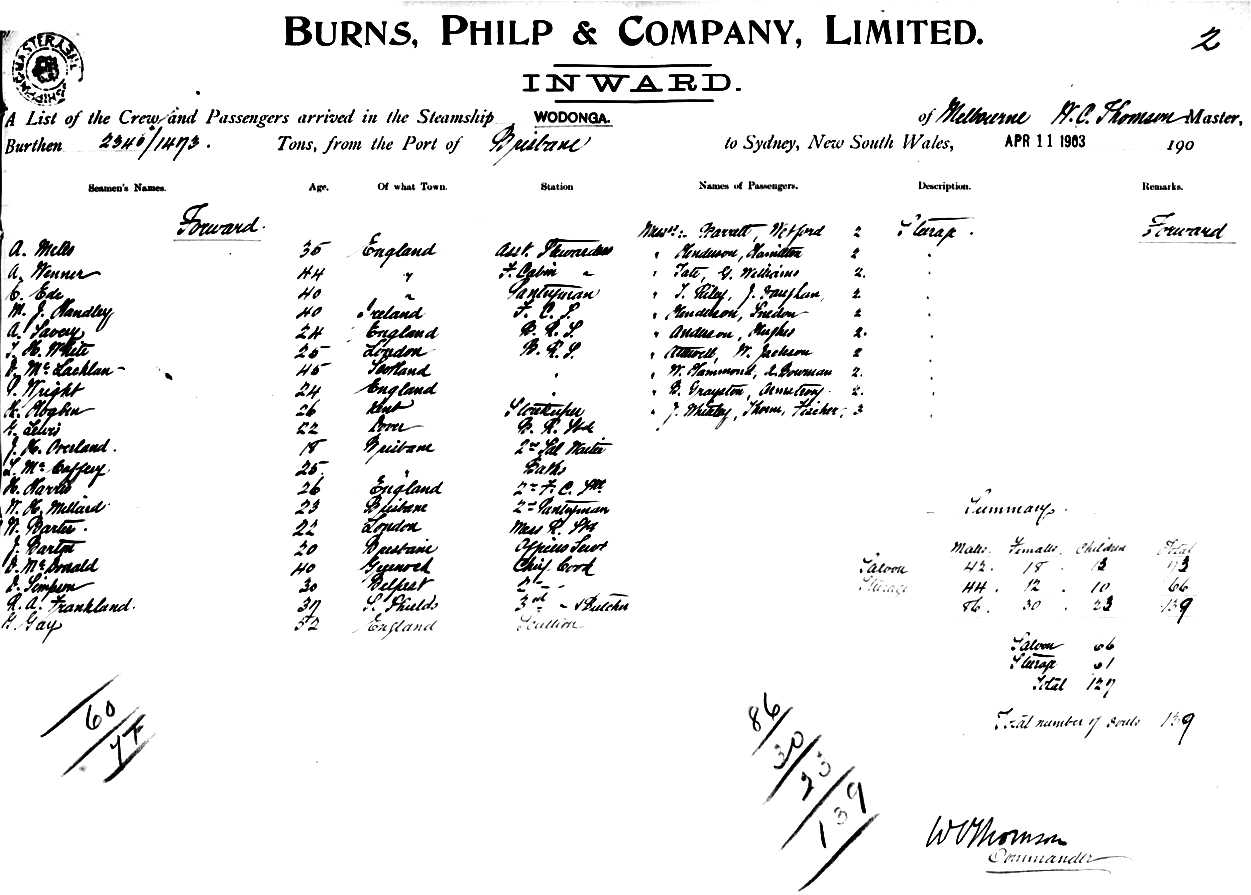 BURNS, PHILP & COMPANY, LIMITED.
2
INWARD.
A List of the Crew and Passengers arrived in the Steamship WODONGA. of Melbourne W.C. Thomson Master,
Burthen 2340/1473. Tons, from the Port of Brisbane to Sydney, New South Wales, APR 11 1903 190
Seamen's Names. Age. Of what Town. Station Names of Passengers. Description. Remarks.
Forward. Messrs:- Barrett, Wexford 2 Steerage. Forward
A. Mells 35 England Asst. Stewardess " Henderson, Hamilton 2
A. Wenner 44 " F. Cabin " " Tate, G. Williams 2.
C. Ede 40 " Pantryman " T. Riley, J. Vaughan, 2.
M. J. Handley 40 Ireland F. C. S. " Henderson, 2
A. Savery 24 England B. R. S. " Anderson, Hughes 2.
J. H. White 25 London B. R. S. " W. Jackson 2
D. McLachlan 45 Scotland " " W. Hammond, Bowman 2.
Wright 24 England " " B. Grayston, Armstrong 2.
H. Hogben 26 Kent Storekeeper " J. Whitley, Thorm, Fischer, 3
G. Lewis 22 Dover B. R. Std
J. H. Overland. 18 Brisbane 2nd Sal Waiter
McCaffery 25 " Baths
H. Harris 26 England 2nd F. C. St
W. H. Millard 23 Brisbane 2nd Pantryman
W. Barter. 22 London Mess R. Std
J. Barton 20 Brisbane Officers Servt
D. McDonald 40 Greenock Chief Cook
D. Simpson 30 Belfast 2nd "
R. A. Frankland. 37 S. Shields 3rd " & Butcher
G. Gay 52 England Scullion
Summary.
Males. Females. Children Total
Saloon 42. 18. 13 73
Steerage 44. 12. 10 66
86. 30. 23 139
Saloon 66
Steerage 61
Total 127
Total number of Souls 139
60
86
30
23
139
W C Thomson
Commander